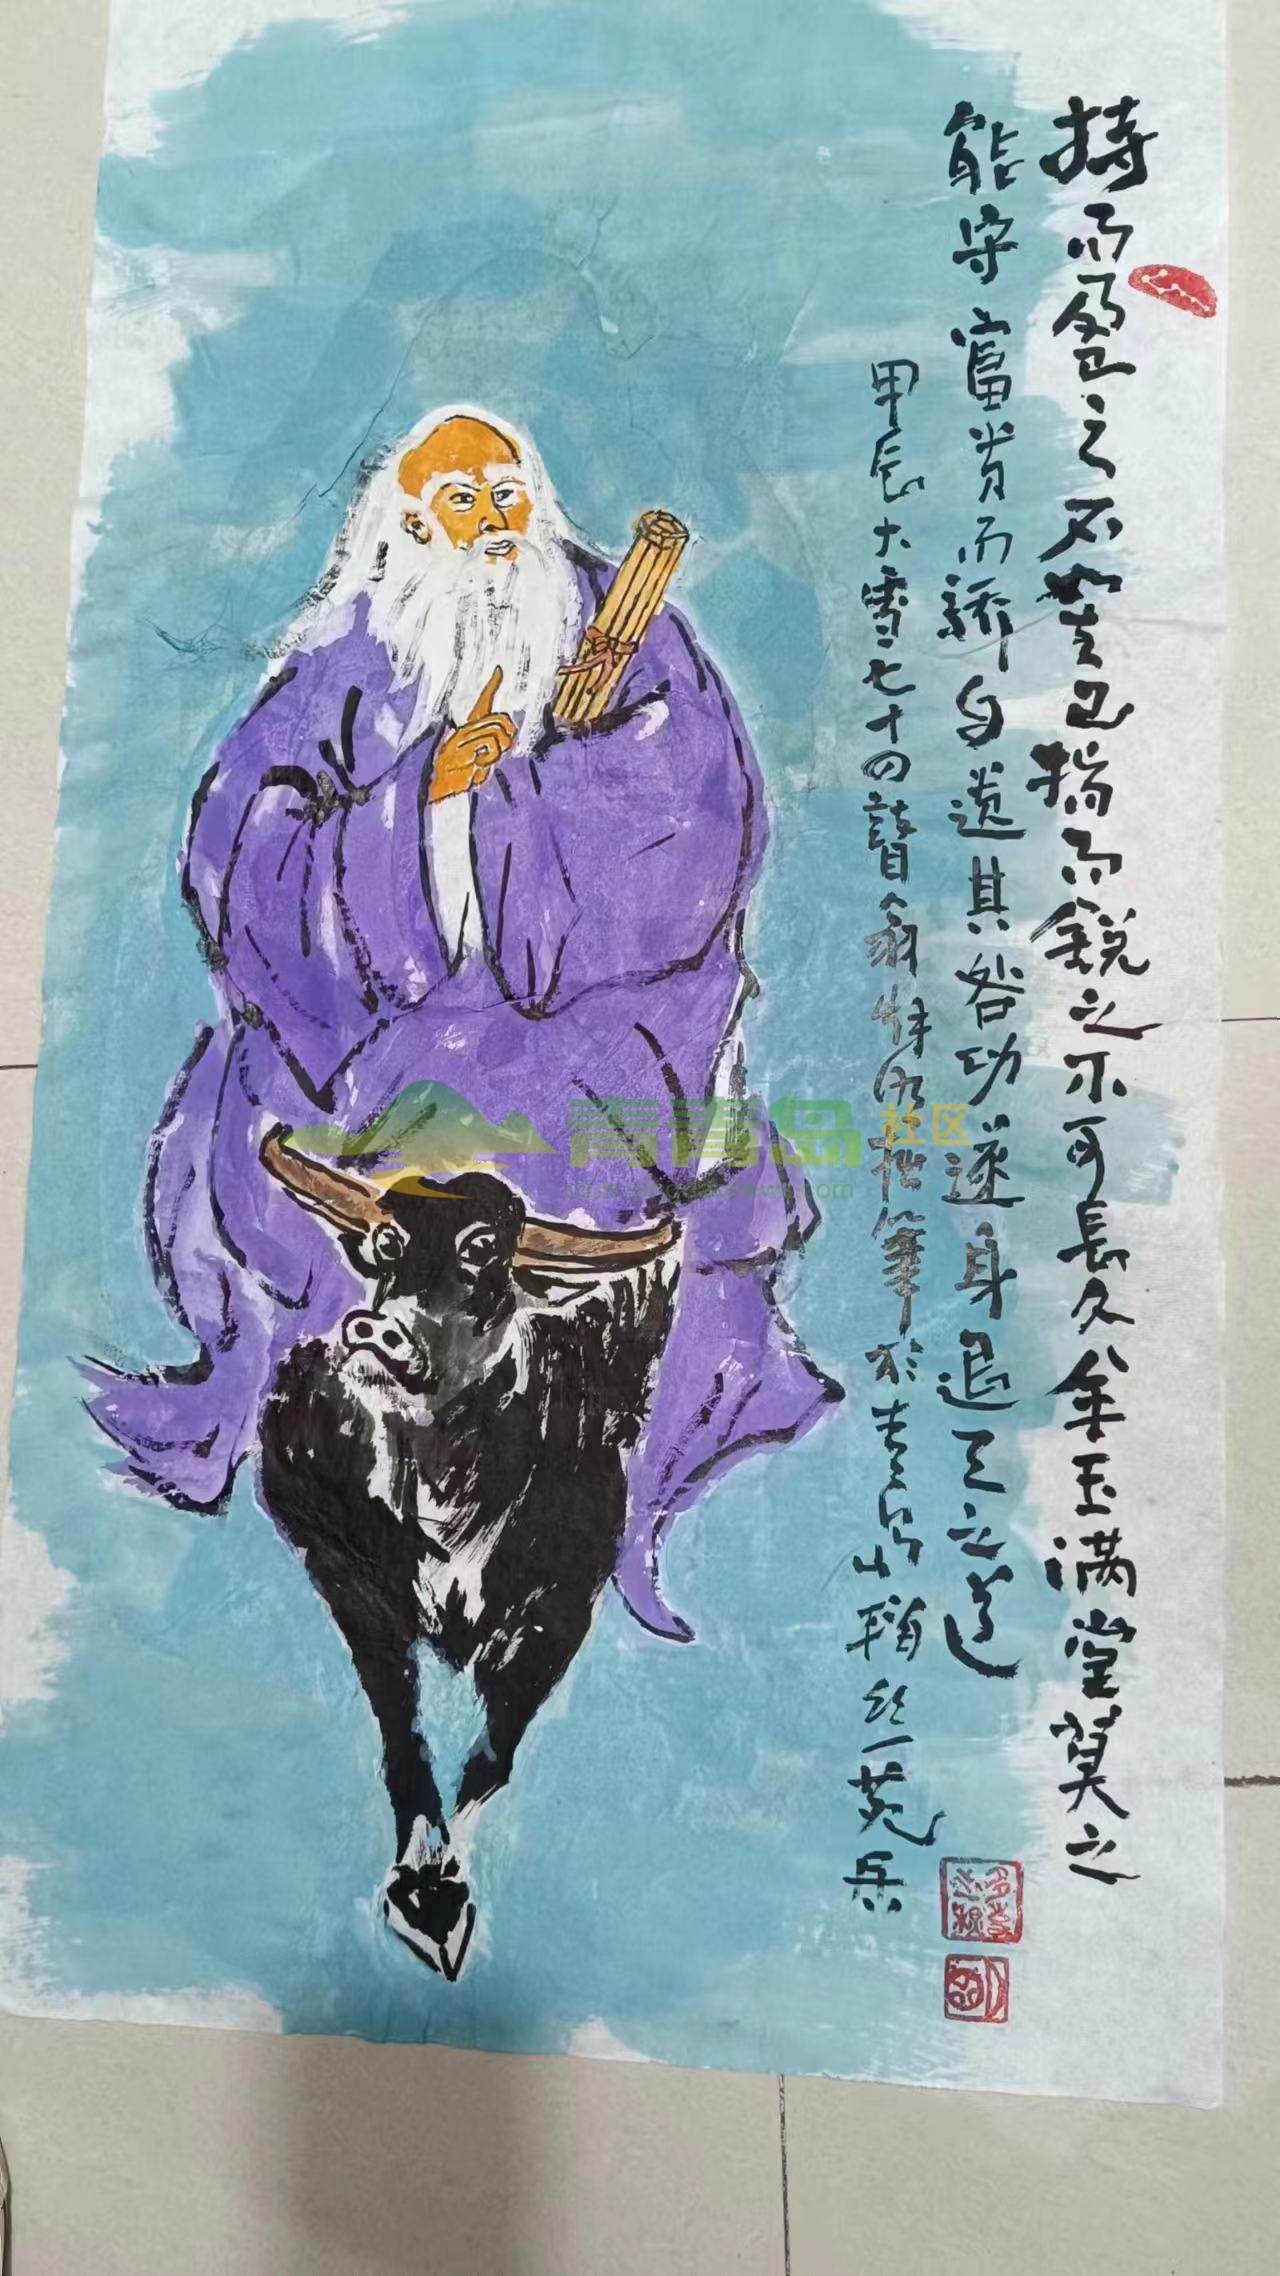 持而盈之不若其已揣而鋭之不可長久金玉满堂莫之
能守富貴而骄自遗其咎功遂身退天之道
甲辰大雪七十四
翁
拙筆於青岛山
苑
青青岛社区
club.qingdaonews.com